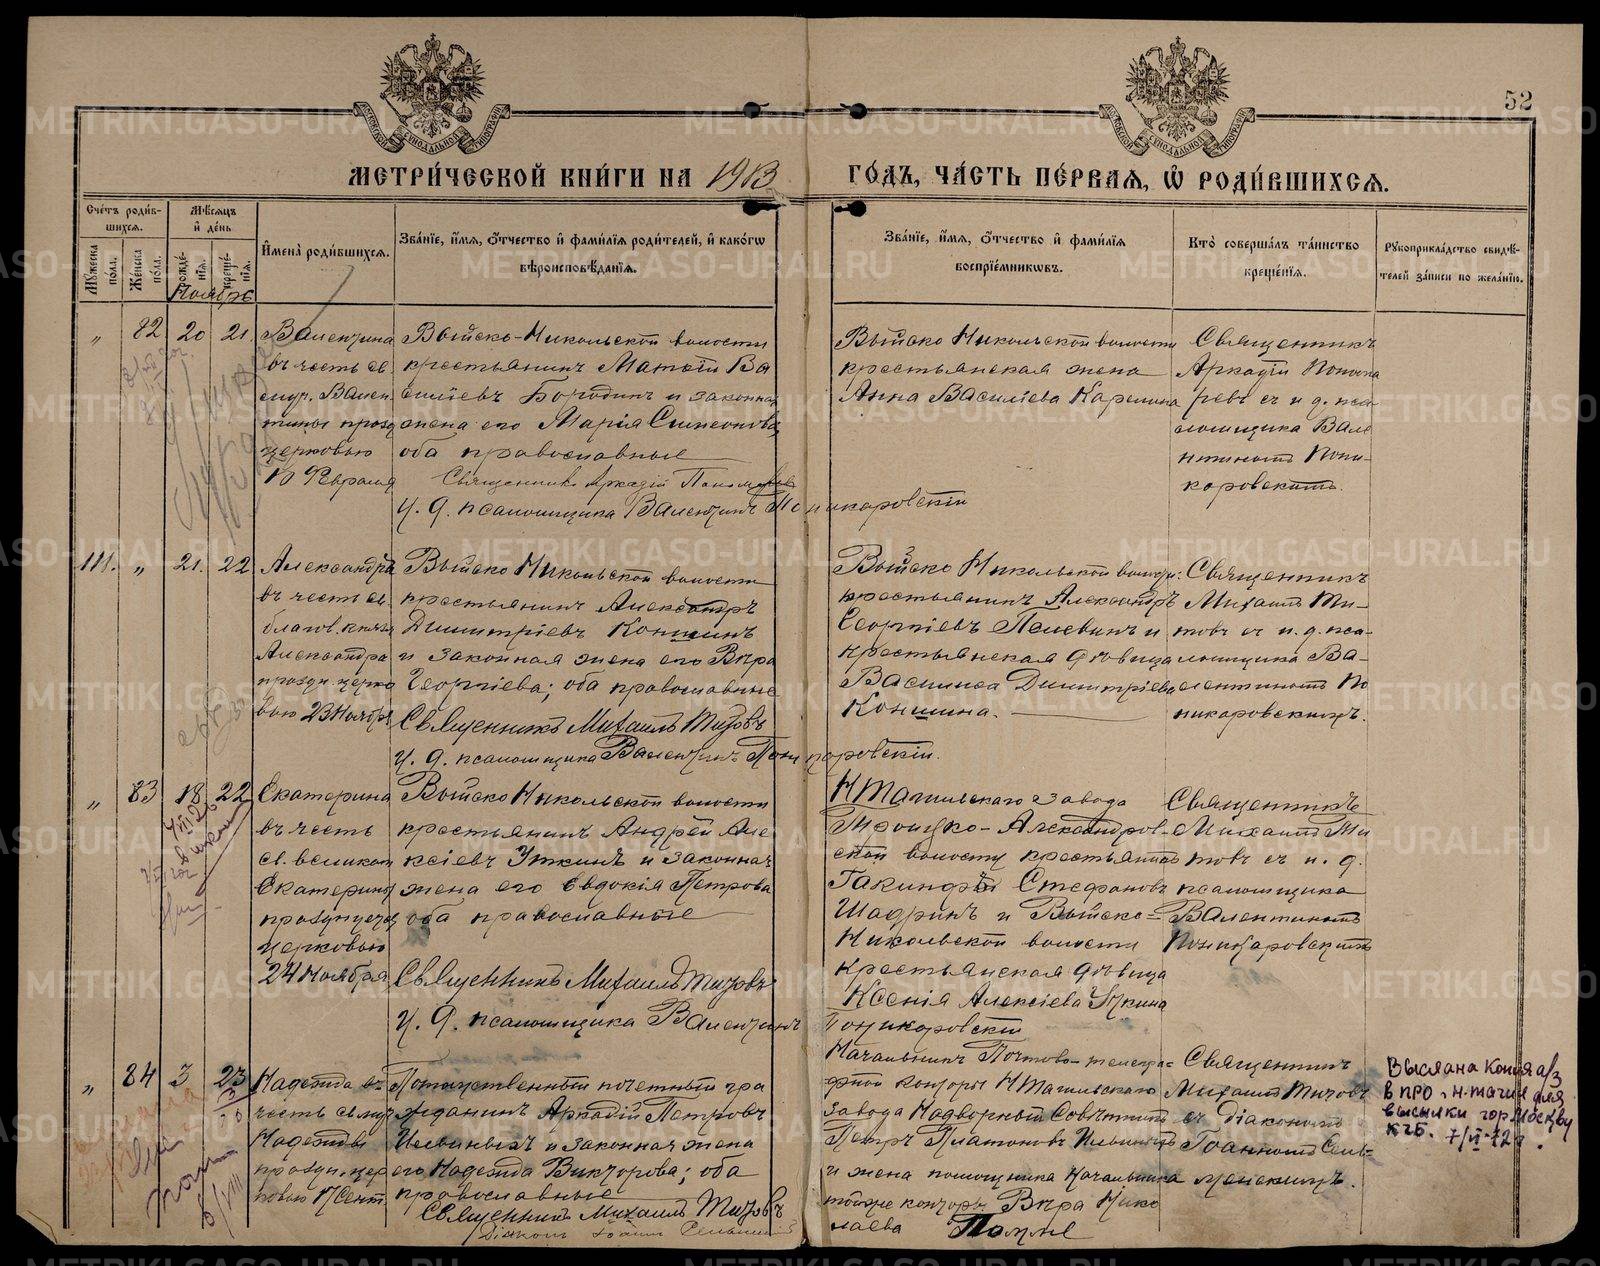 52
МЕТРИ́ЧЕСКОЙ КНИ́ГИ НА 1913 ГО́ДЪ, ЧА́СТЬ ПЕ́РВАЯ, Ѿ РОДИ́ВШИХСЯ.
Сче́тъ роди́вшихся.
Мѣ́сяцъ и́ де́нь
Мꙋ́жеска по́ла.
Же́нска по́ла.
Рожде́нїя.
Креще́нїя.
Ноябрь
И҆мена̀ роди́вшихся.
Зва́нїе, и҆́мя, ѻ҆́тчество и҆ фами́лїя роди́телей, и҆ како́гѡ вѣроисповѣ́данїя.
Зва́нїе, и҆́мя, ѻ҆́тчество и҆ фами́лїя воспрїе́мникѡвъ.
Кто̀ соверша́лъ та́инство креще́нїя.
Рꙋкоприкла́дство свидѣ́телей за́писи по жела́нїю.
„ 82 20 21
Валентина
въ честь св.
муч. Вален
тины празд
церковью
10 Февраля
Выйско-Никольской волости
крестьянинъ Матѳій Ва
силіевъ Бородинъ и законная
жена его Марія Симеонова,
оба православные
Священникъ Аркадій Пономаревъ
И. д. псаломщика Валентинъ Поникаровскій
Выйско Никольской волости
крестьянская жена
Анна Василіева Карелина
Священникъ
Аркадій Понома
ревъ съ и. д. пса-
ломщика Вале
нтиномъ Пони-
каровскимъ.
111. „ 21. 22
Александръ
въ честь св.
благов. князя
Александра
праздн. церко
вью 23 Ноября
Выйско Никольской волости
крестьянинъ Александръ
Димитріевъ Коншинъ
и законная жена его Вѣра
Георгіева; оба православные
Священникъ Михаилъ Титовъ
И. д. псаломщика Валентинъ Поникаровскій.
Выйско Никольской волости:
крестьянинъ Александръ
Георгіевъ Пелевинъ и
крестьянская дѣвица
Васмлиса Димитріева
Коншина.
Священникъ
Михаилъ Ти-
товъ съ и. д. пса-
ломщика Ва-
лентиномъ По
никаровскимъ.
„ 83 18 22
Екатерина
въ честь
св. великом
Екатерины
празднуемой
церковью
24 Ноября
Выйско Никольской волости
крестьянинъ Андрей Але
ксіевъ Уткинъ и законная
жена его Евдокія Петрова
оба православные
Священникъ Михаилъ Титовъ
И. д. псаломщика Валентинъ Поникаровскій
НТагильскаго завода
Троицко-Александров-
ской волости крестьянинъ
Іакинфъ Стефановъ
Шадринъ и Выйско-
Никольской волости
крестьянская дѣвица
Ксенія Алексіева Уткина
Священникъ
Михаилъ Ти
товъ съ и. д.
псаломщика
Валентиномъ
Поникаровскимъ
„ 84 3 23
Надежда въ
честь св. муч
Надежды
праздн. цер
ковью 17 Сент.
Потомственный почетный гра
жданинъ Аркадій Петровъ
Ильиныхъ и законная жена
его Надежда Викторова; оба
православные
Священникъ Михаилъ Титовъ
Діаконъ Іоаннъ
Начальникъ Почтово-телегра=
фной конторы НТагильскаго
завода Надворный Совѣтникъ
Петръ Платоновъ Ильиныхъ
и жена помощника Начальника
тойже конторы Вѣра Нико
лаева
Священникъ
Михаилъ Титовъ
съ діакономъ
Іоанномъ
Выслана копия а/з
в про. н-тагил для
высылки гор. Москву
КГБ. 7/VI-72 г.